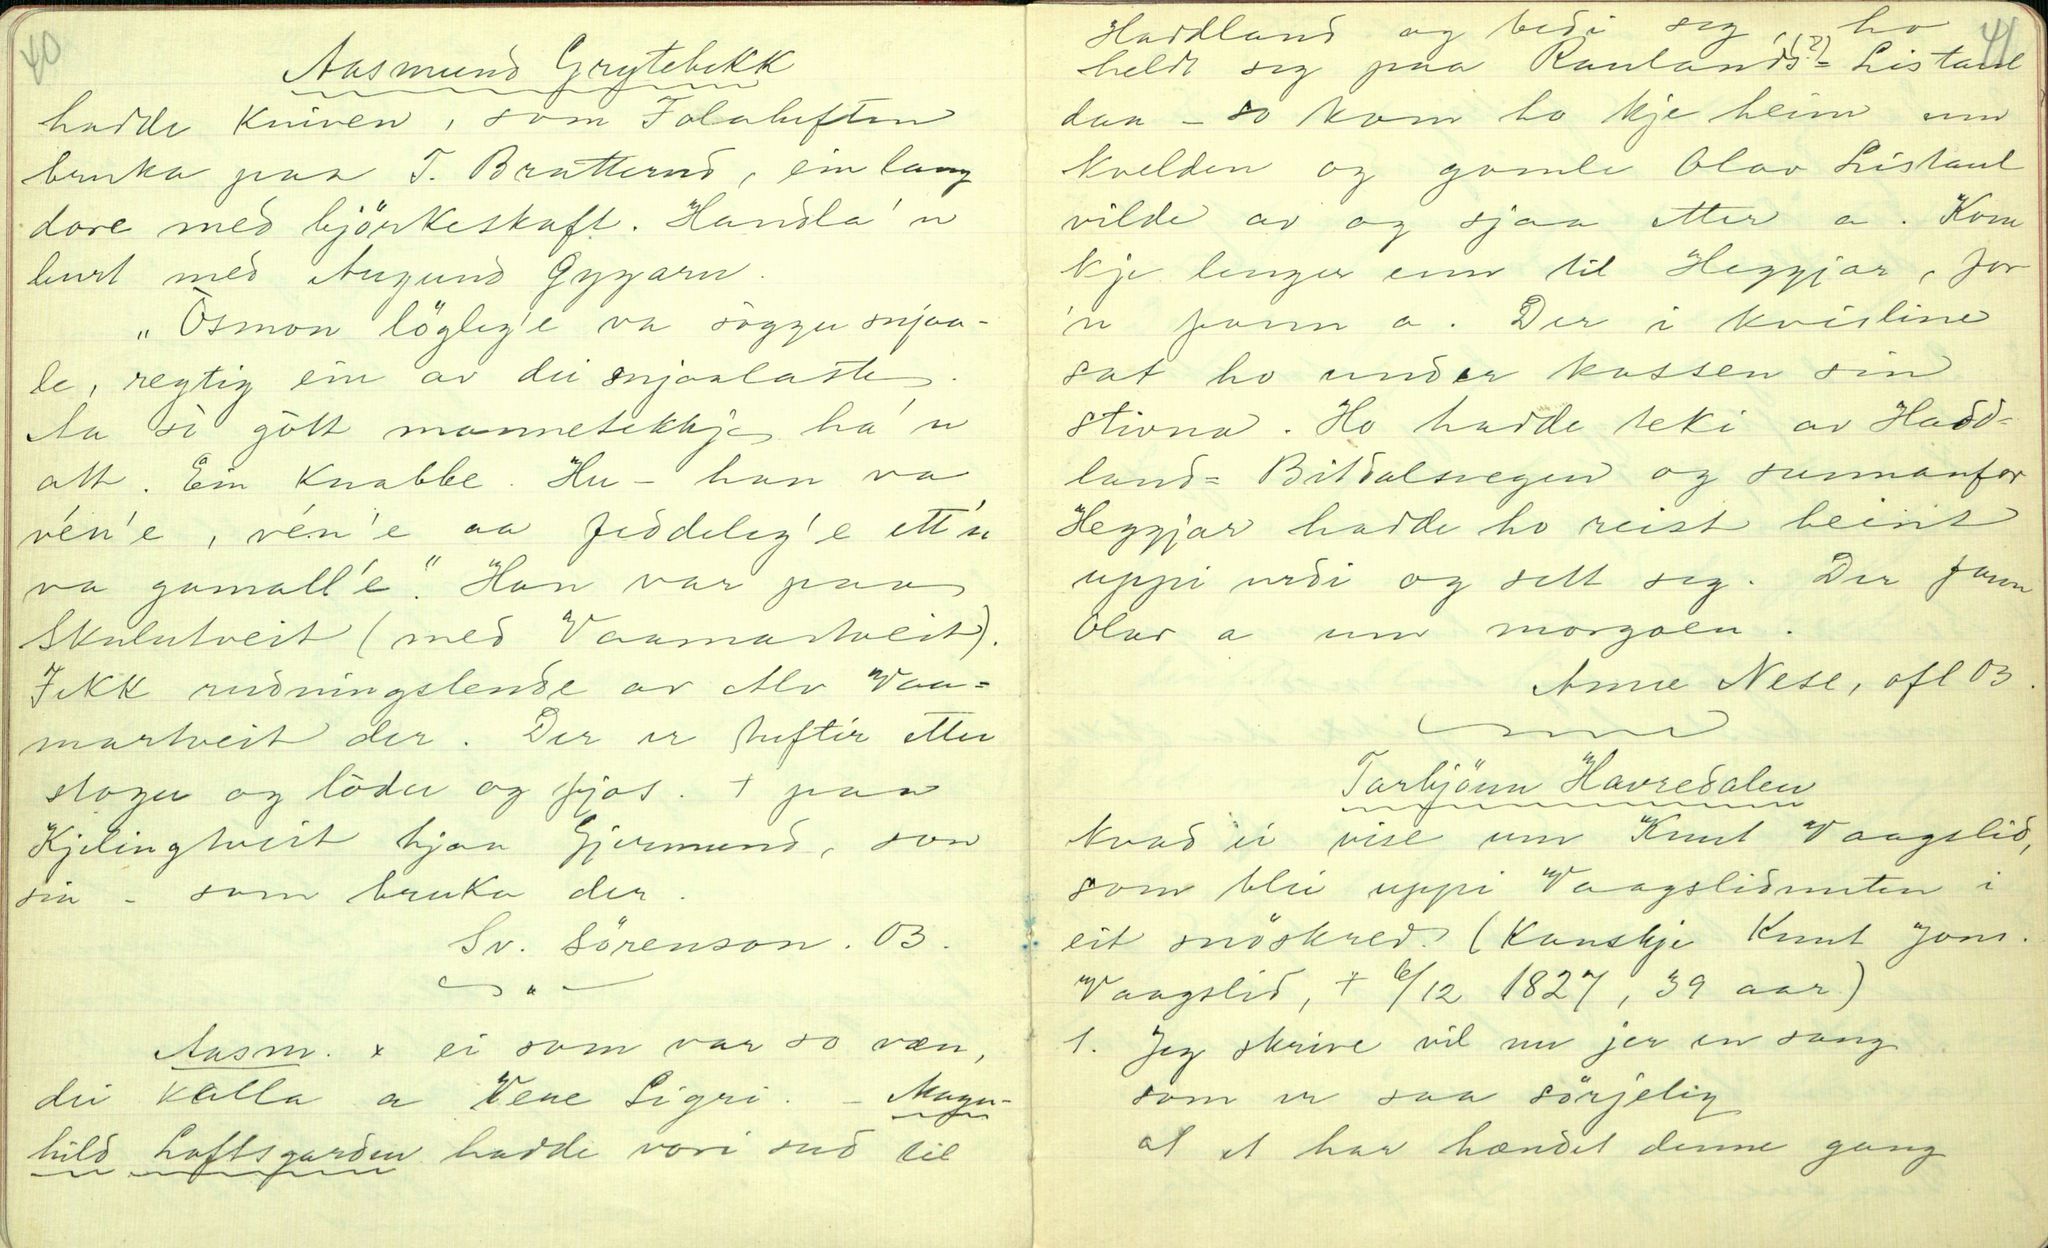 40
Aasmund Grytebekk
hadde kniven, som Folaheften
bruka paa T. Bratterud, ein lang
dore med björkeskaft. Handla'n
burt med Augund Gygarn.
„Òsmon lögleg'e va söggu snjaa-
le, regtig ein av dei snjaalaste.
Aa so gött mannetekkje ha'n
att. Ein Knabbe. Hu - han va
vén'e, vén'e aa feddeleg'e ett'n
va gamall'e". Han var paa
Skulutveit (med Vaamartveit).
Fekk rudningslende av Alv Vaa-
martveit der. Der er tuftir etter
stogu og lödu og fjos. + paa
Kjelingtveit hjaa Gjermund, son
sin - som bruka der.
Sv. Sörenson. 03.
Aasm. x ei som var so væn,
dei kalla a Vene Sigri. - Magn-
hild Loftsgarden hadde vori sud til
41
Haddland og bedi seg, ho
heldt seg paa Raulands(?)= Listaul
daa - so kom ho kje heim um
kvelden og gamle Olav Listaul
vilde av og sjaa etter a. Kom
kje lenger enn til Heggjar, for
'n fann a. Der i kvisline
sat ho under kassen sin
stivna. Ho hadde teki av Hadd=
land= Bitdalsvegen og sunnanfor
Heggjar hadde ho reist beint
uppi urdi og sett seg. Der fann
Olav a um morgoen.
Anne Nese, ofl 03.
Tarbjönn Havredalen
kvad ei vise um Knut Vaagslid,
som blei uppi Vaagslidnuten i
eit snöskred. (Kanskje Knut Jons.
Vaagslid, + 6/12 1827, 39 aar)
1. Jeg skrive vil nu jer en sang
som er saa sörjelig
at et har hændet denne gang